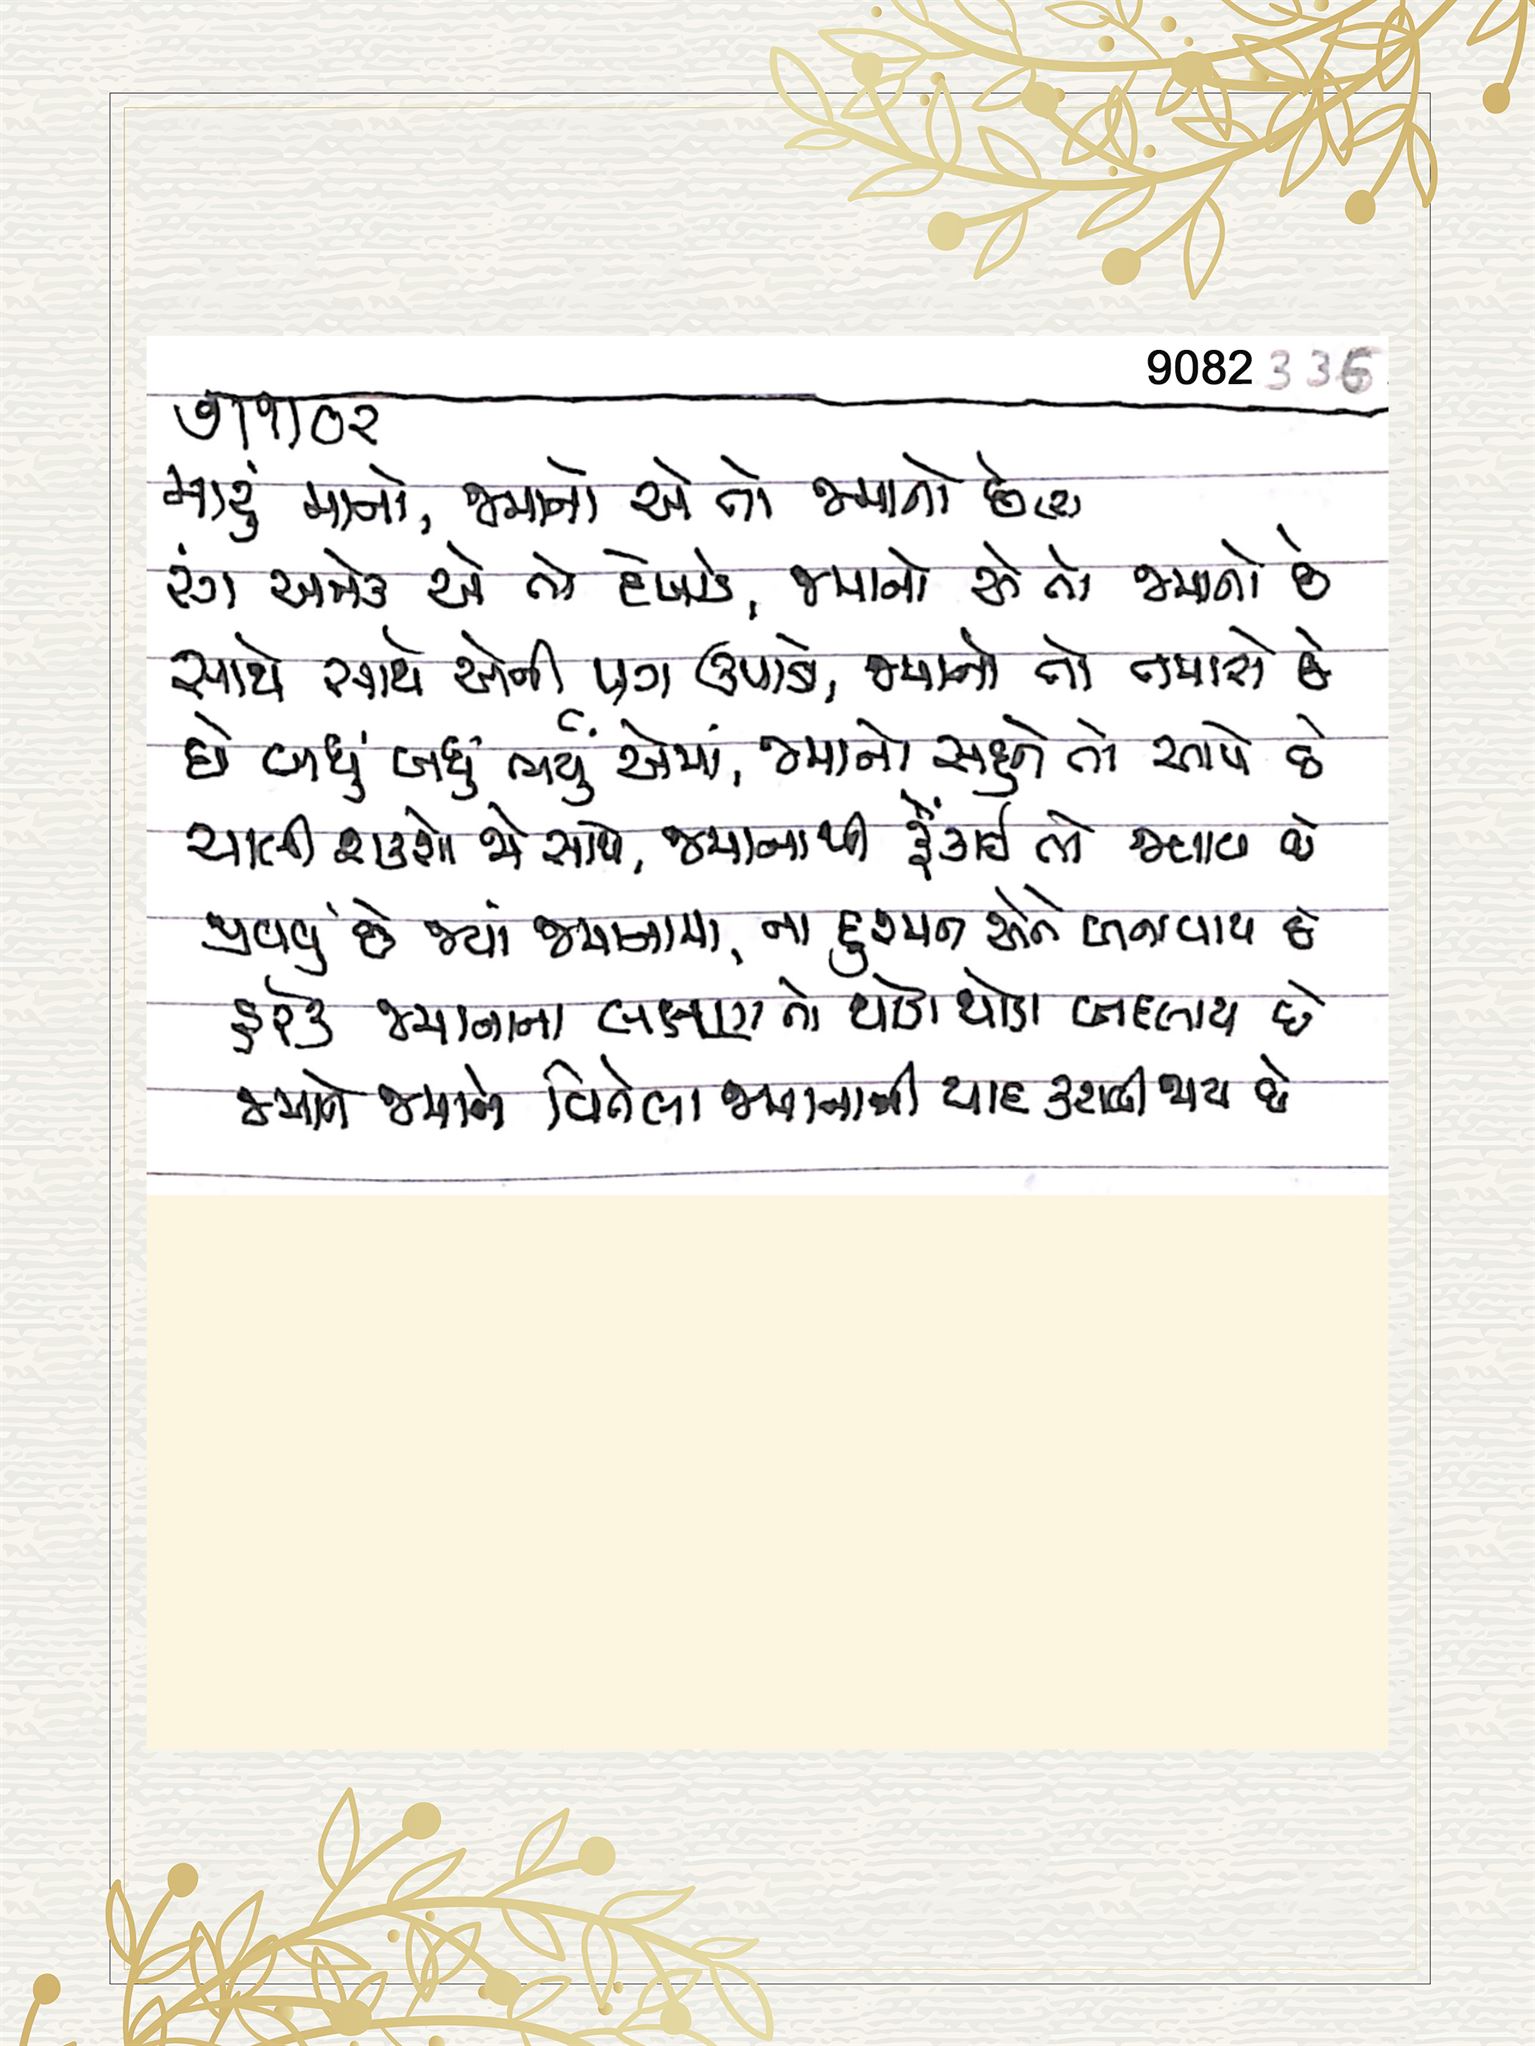 9082 336
૭।૧।૦૨
મારું માનો, જમાનો એ તો જમાનો છે(૨)
રંગ અનેક એ તો દેખાડે, જમાનો એ તો જમાનો છે
સાથે સાથે એની પગ ઉપાડો, જમાનો તો તમારો છે
છે બધું બધું ભર્યું એમાં, જમાનો સહુને તો આપે છે
ચાલી શકશો જો સાથે, જમાનાથી ફેંકાઈ તો જવાય છે
જીવવું છે જ્યાં જમાનામાં, ના દુશ્મન એને બનાવાય છે
હરેક જમાનાના લક્ષણ તો થોડા થોડા બદલાય છે
જમાને જમાને વિતેલા જમાનાની યાદ કરાવી જાય છે